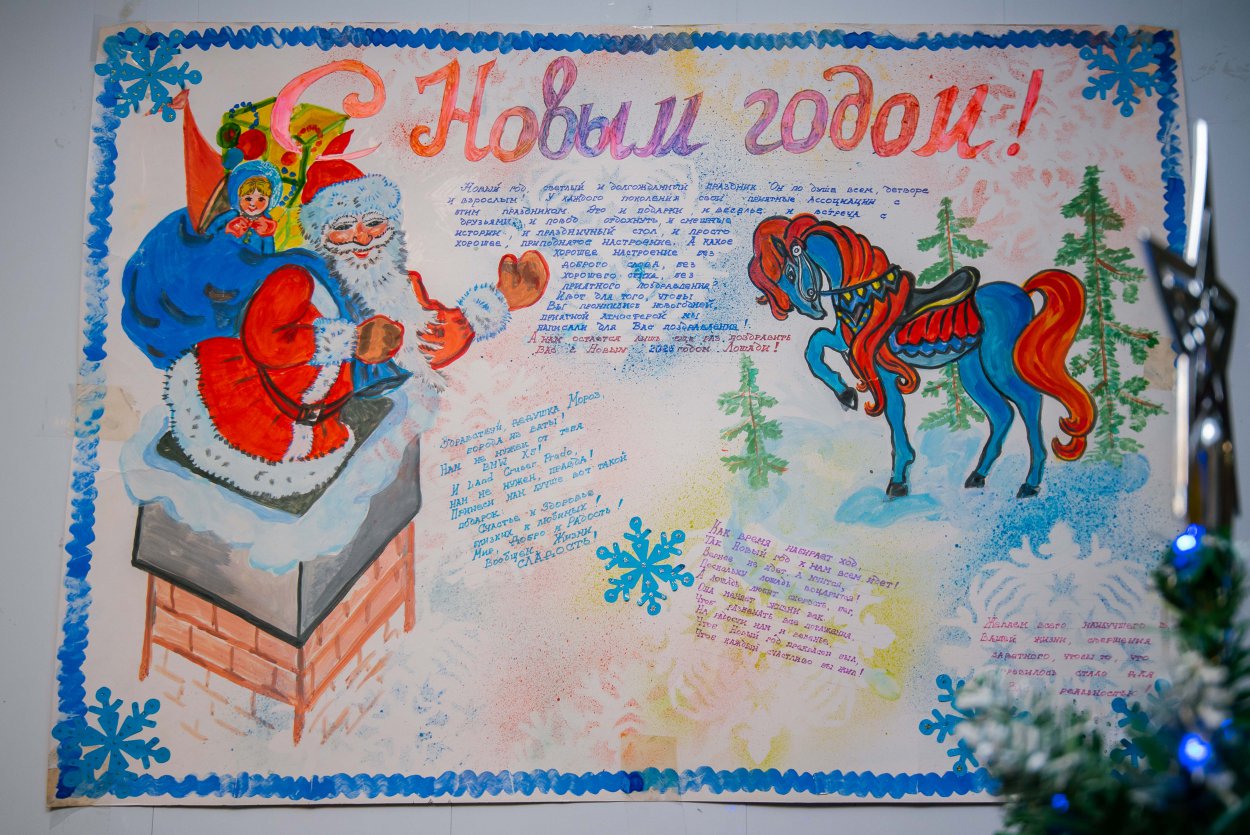 С Новым годом!
Новый год, светлый и долгожданный праздник. Он по душе всем, детворе
и взрослым. У каждого поколения свои приятные ассоциации с
этим праздником. Это и подарки и веселье, и встреча с
друзьями, и повод отдохнуть, и смешные
истории, и праздничный стол, и просто
хорошее, приподнятое настроение. А какое
хорошее настроение без
доброго слова, без
хорошего стиха, без
приятного поздравления?
И вот для того, чтобы
Вы прониклись новогодней,
приятной атмосферой мы
написали для Вас поздравления!
А нам остается лишь еще раз поздравить
Вас с Новым 2026 годом Лошади!
Здравствуй, дедушка Мороз,
борода из ваты!
Нам не нужен от тебя
BMW X5!
И Land Cruser Prado,
нам не нужен, правда!
Принеси нам лучше вот такой
подарок
Счастье и Здоровье
близких и любимых
Мир, Добро и Радость!
Вообщем Жизни
сладость!
Как время набирает ход,
Так Новый год к нам всем идет!
Вернее не идет, а мчится,
Поскольку лошадь воцарится!
А лошадь любит скорость, бег,
Она меняет жизни век.
Чтоб развевать все поражения,
На радости нам и веселье,
Чтоб Новый год прекрасен был,
Чтоб каждый счастливо бы жил!
Желаем всего наилучшего в
Вашей жизни, свершения
заветного, чтобы то, что
стало для
реальностью